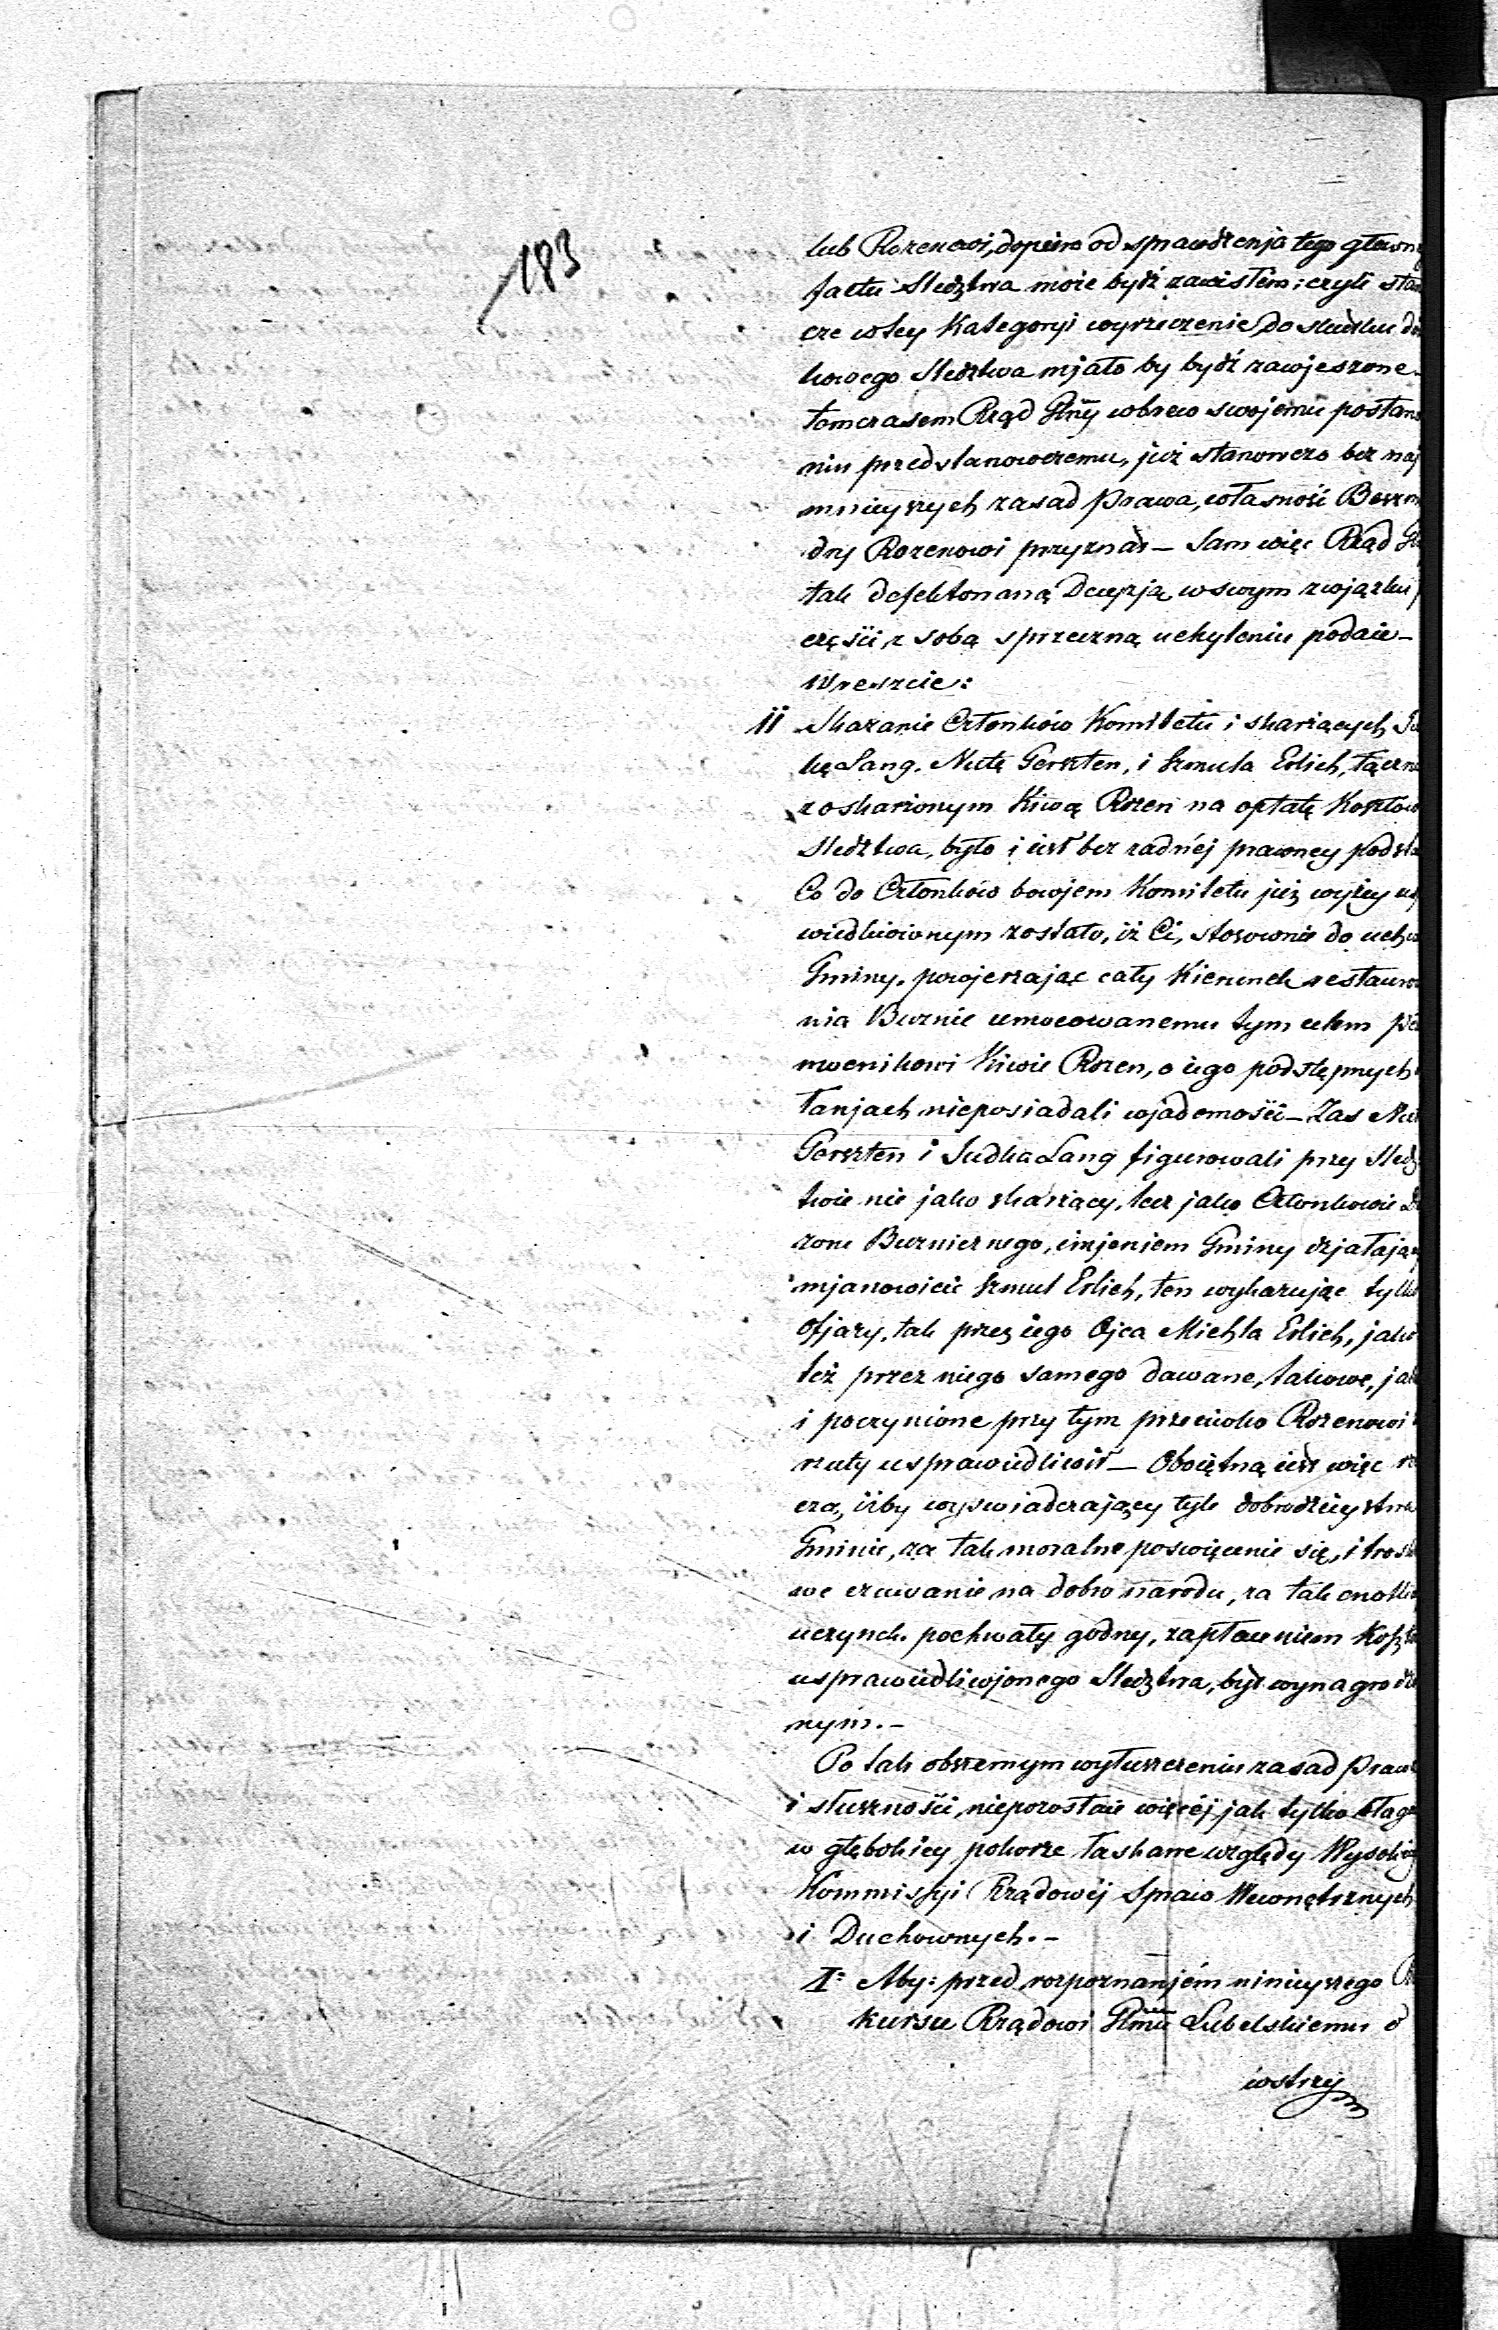 183
lub Rozenowi, dopiero od sprawdzenja tego główn
factu Sledztwa może bydź zawisłem; czyli stan
cze w tey Kategoryi wyrzeczenie do skutku do
kowego Sledztwa mjało by bydź zawjeszone.
tomczasem Rząd Głny wbrew swojemu postano
niu przedstanowczemu, już stanowczo bez naj
mnieyszych zasad Prawa, własność
dry Rozenowi przyznał – Sam więc Rząd
tak defektowaną Decyzją w swym związku
części z sobą sprzeczną uchyleniu podaie –
Wreszcie:
11 Skazanie Członków Komitetu i skarżących
kę Lang. Nutę Gerszten, i Szmula Erlich, łączn
z oskarżonym Kiwą Rozen na opłatę Kosztow
Sledztwa, było i iest bez żadnéj prawney podsta
Co do Członków bowjem Komitetu już wyżey us
wiedliwionym zostało, iż Ci, stosownie do uchw
Gminy. powjerzając cały Kierunek restauro
nia Burnie umocowanemu tym celem peł
mocnikowi Kiwie Rozen, o iego podstępnych
łanjach nieposiadali wjadomości – Zas Nut
Gerszten i Judka Lang figurowali przy Sledz
twie nie jako skarżący, lecz jako Członkowie
zoru Burniernego, imjeniem Gminy dzjałając
mjanowicie Szmul Erlich, ten wykazując tylko
Ofjary, tak przez iego Ojca Michla Erlich, jako
też przez niego samego dawane, takowe, jak
i poczynione przy tym przeciwko Rozenowi
rzuty usprawiedliwił – Obojętną iest więc rz
cza, iżby wyswiadczający tyle dobrodzieystwa
Gminie, za tak moralne poswięcenie się, i trosk
we czuwanie na dobro narodu, za tak cnotliw
uczynek. pochwały godny, zapłaceniem Koszt
usprawiedliwjonego Sledztwa, był wynagrodzo
nym. –
Po tak obszernym wyłuszczeniu zasad Prawa
i słuszności, niepozostaie więcéj jak tylko błaga
w głębokiey pokorze łaskawe względy Wysokiey
Kommissyi Rządowéj Spraw Wewnętrznych
i Duchownych. –
I: Aby: przed rozpoznanjém ninieyszego
kursu Rządowi Głmu Lubelskiemu o
wstrzy